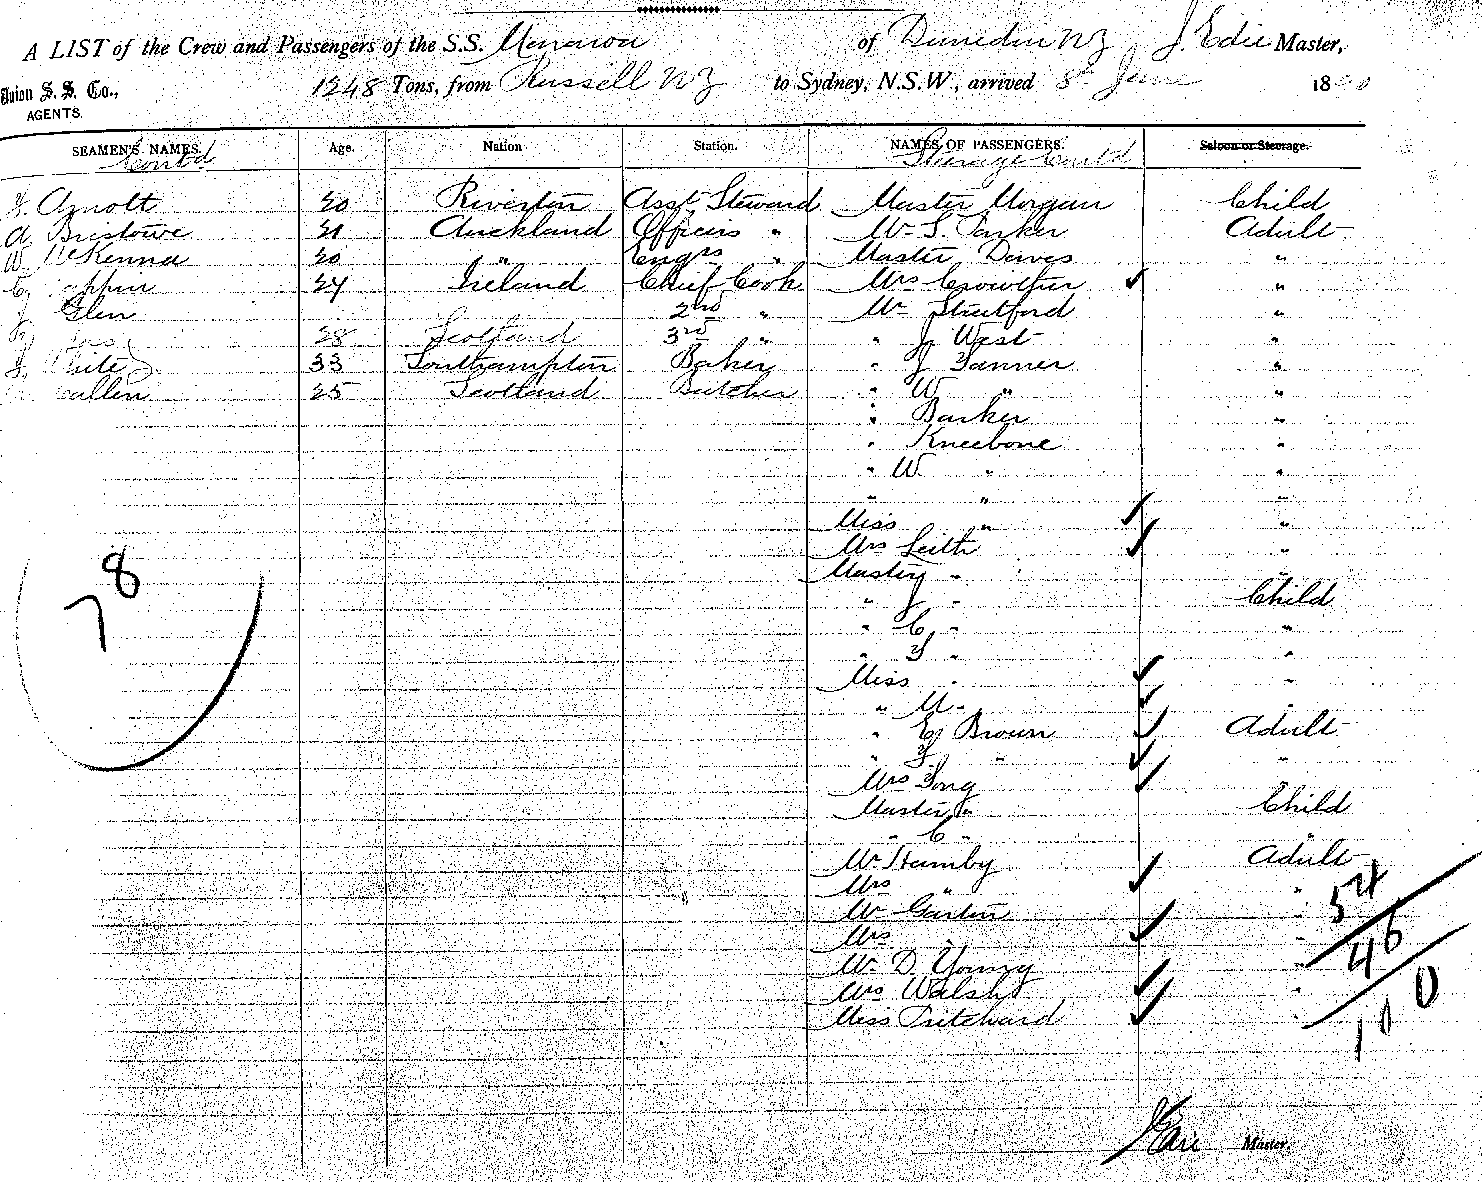 A LIST of the Crew and Passengers of the S.S. Manapouri of Dunedin NZ J. Edie Master,
Union S. S. Co., 1248 Tons, from Russell NZ to Sydney, N.S.W., arrived 8th June 18
AGENTS.
SEAMEN'S NAMES. Age. Nation Station. NAMES OF PASSENGERS. Saloon or Steerage.
Contd Steerage Contd
Arnott 20 Riverton Asst Steward Master Morgan Child
A Bristowe 21 Auckland Officers " Mr S. Parker Adult
W McKenna 20 " Engrs " Master Dawes "
24 Ireland Chief Cook Mrs Crowther "
J Glen 2nd " Mr Stratford "
28 Scotland 3rd " " J West "
33 Southampton Baker " J Tanner "
25 Scotland Butcher " W " "
" Barker "
" Kneebone "
" W " "
" " "
Miss " "
Mrs Leith "
Master "
" J " Child
" C "
" "
Miss " "
" M "
" E Brown Adult
" " "
Mrs Long
Master " Child
" C " "
Mr Hamby Adult
Mrs " "
Mr "
Mrs "
Mr D. Young "
Mrs Walsh "
Miss Pritchard
78
54
46
100
Master.